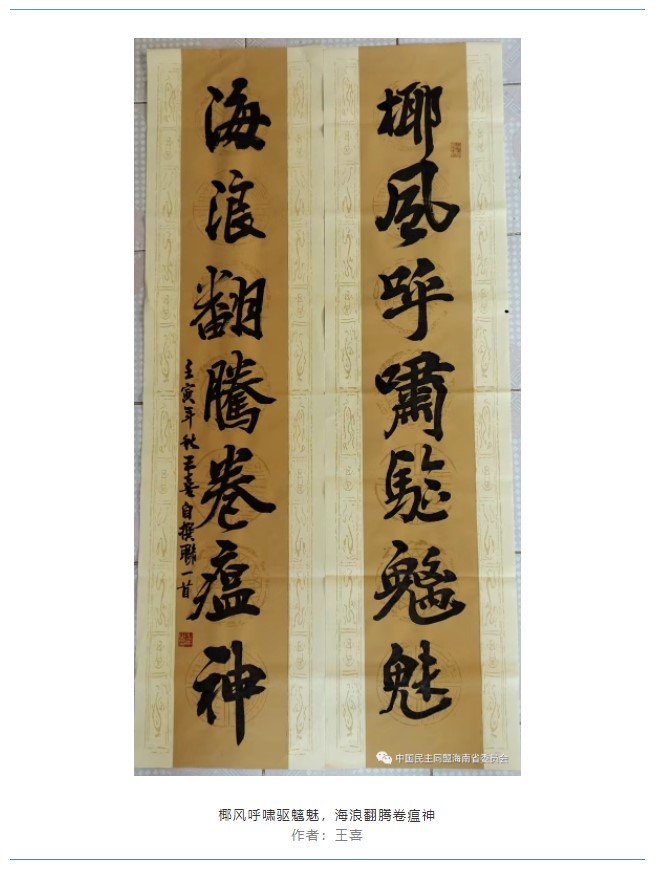 椰風呼嘯駈魑魅
海浪翻騰卷瘟神
壬寅年秋王喜自撰聯一首
中国民主同盟海南省委员会
椰风呼啸驱魑魅，海浪翻腾卷瘟神
作者：王喜